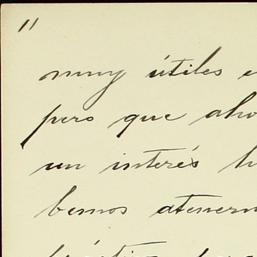 "
muy útiles e
pero que aho
un interés h
bemos atenern